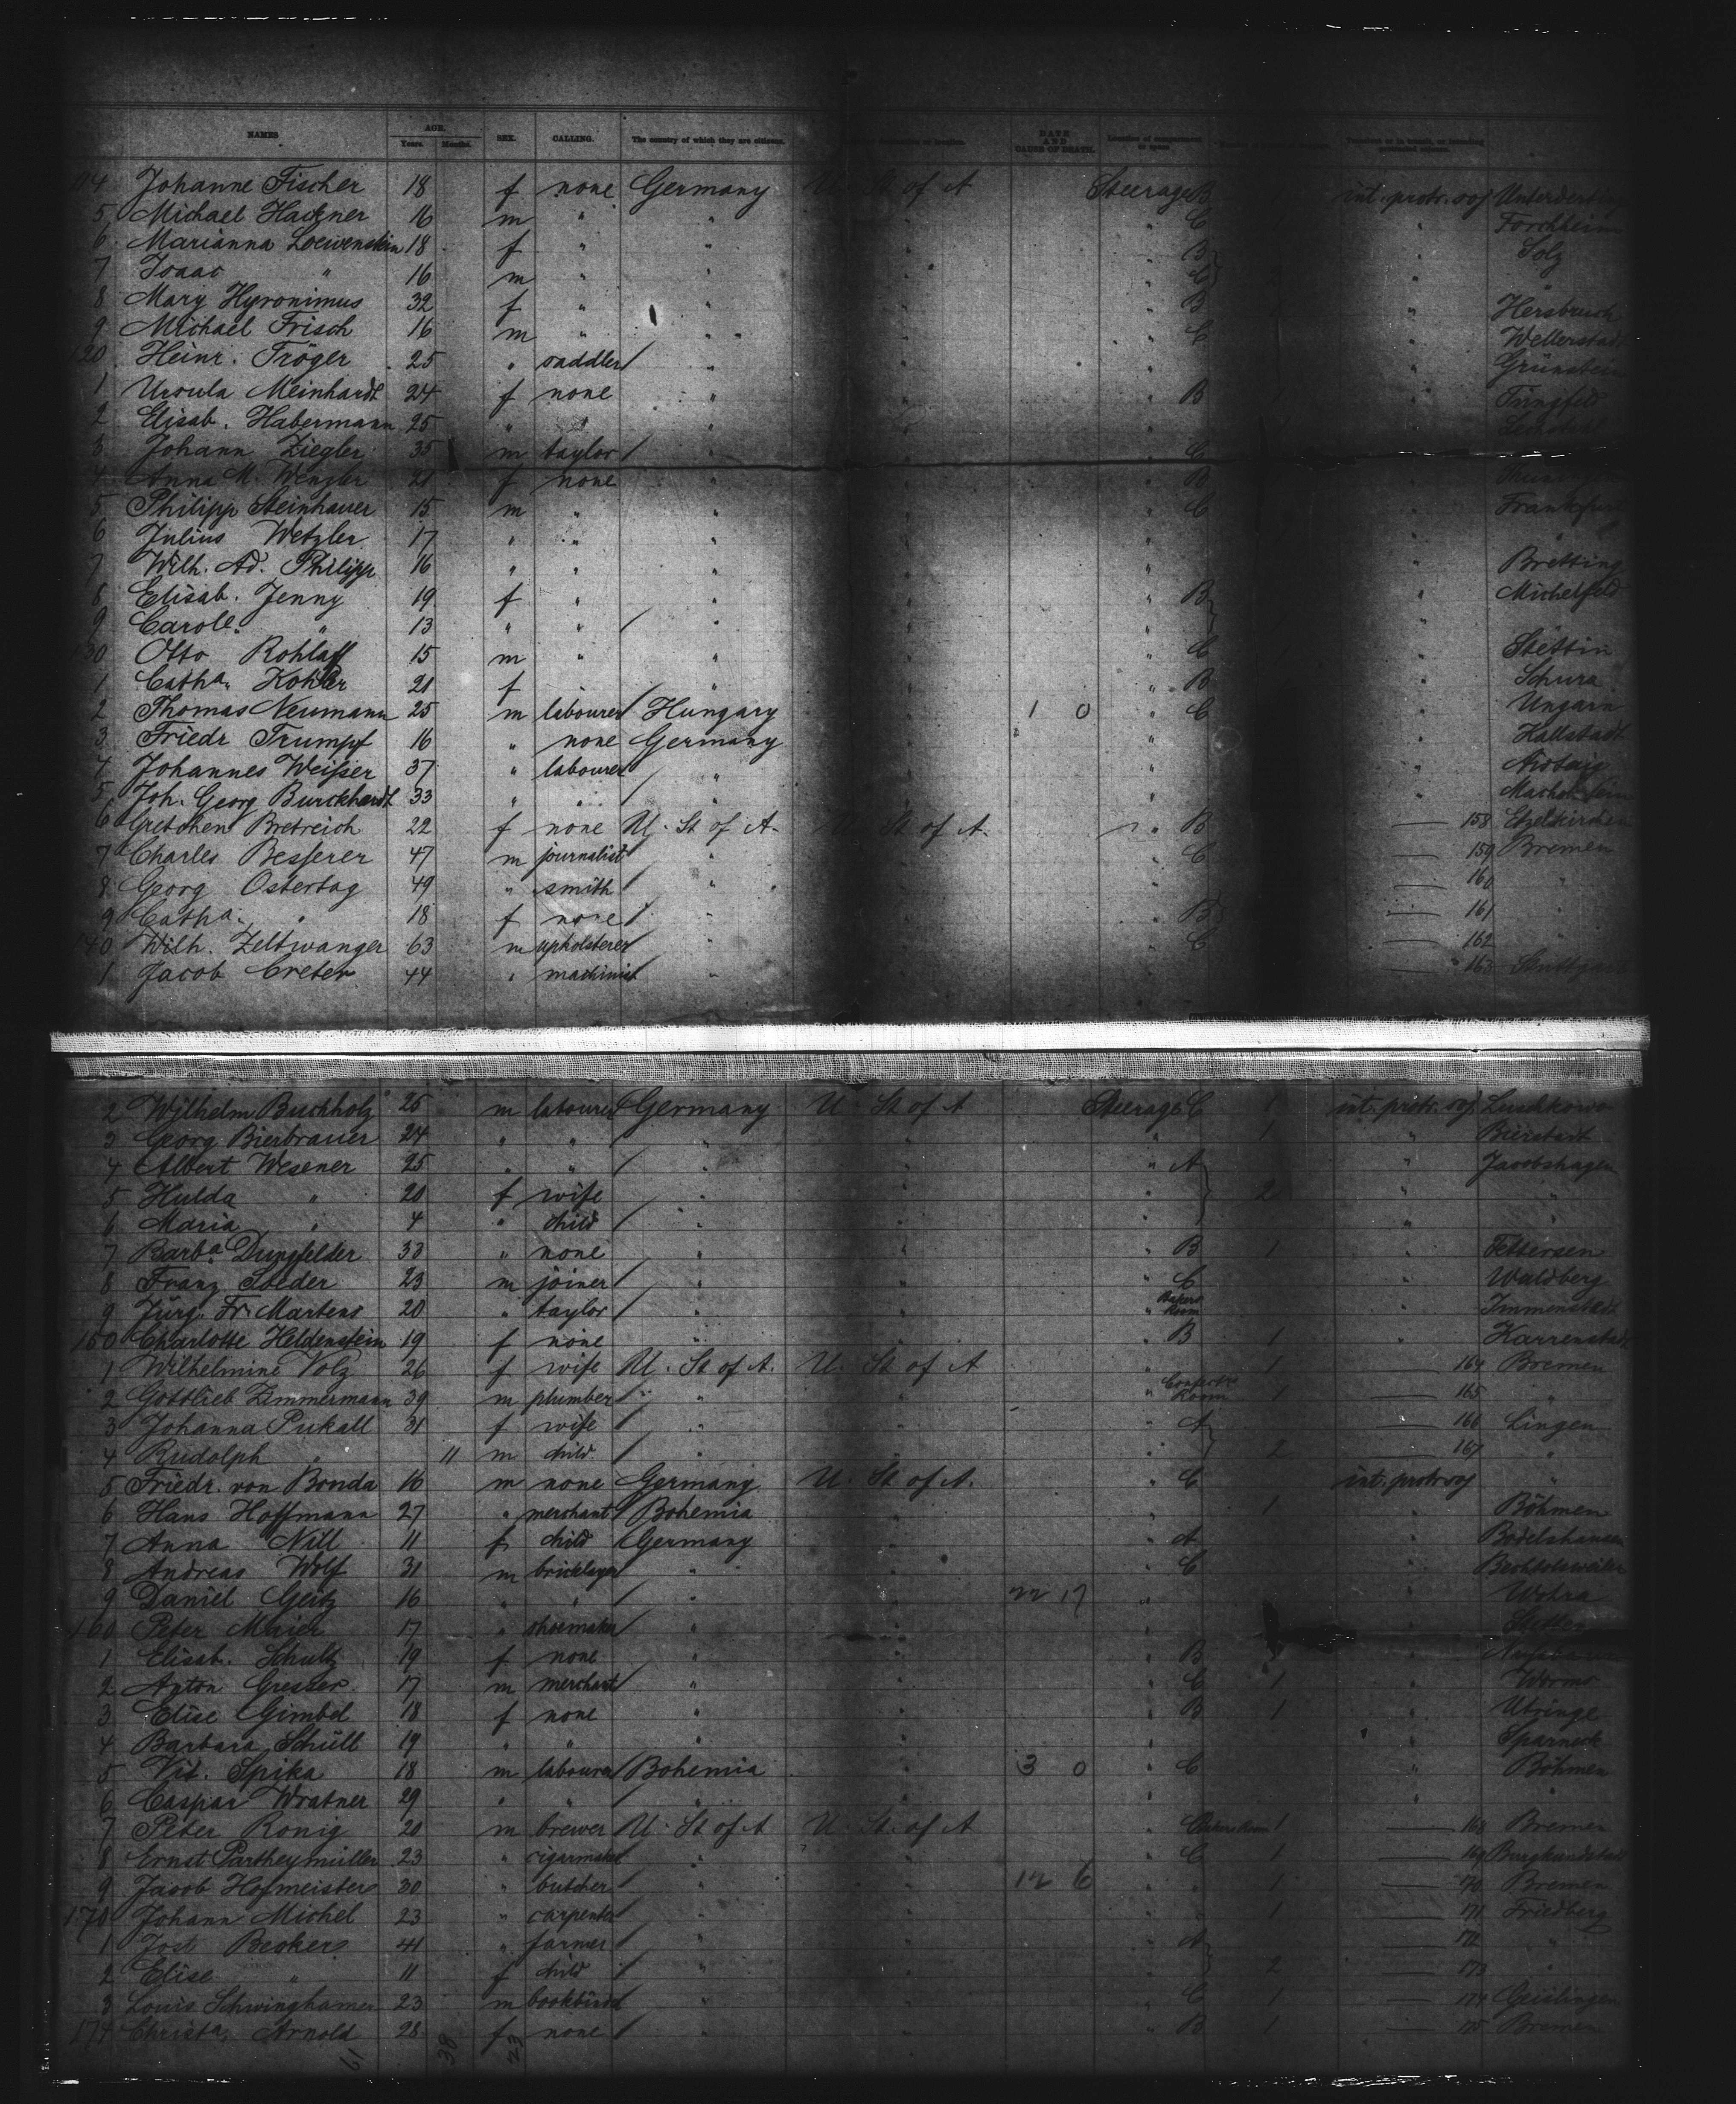 NAMES AGE. Years. Months. SEX. CALLING. The country of which they are citizens. DATE AND CAUSE OF DEATH.
Johanne Fischer 18 f none Germany St of A Steerage B int. protr. soj
5 Michael Hackner 16 m " " " C " Forchheim
6 Marianna Loewenstein 18 f " " " B " Solz
7 Isaac " 16 m " " " C " "
8 Mary Hyronimus 32 f " " " B " Hersbruck
9 Michael Frisch 16 m " " " C " Wellerstadt
120 Heinr. Tröger 25 " saddler " " "
1 Ursula Meinhardt 24 f none " " B "
2 Elisab. Habermann 25 " " "
3 Johann Ziegler 35 m taylor " " C
4 Anna M. Wenzler 21 f none " " B
5 Philipp Steinhauer 15 m " " " C " Frankfurt
6 Julius Wetzler 17 " " " " "
7 Wilh. Ad. Philipp 16 " " " " " Bretting
8 Elisab. Jenny 19 f " " " B " Michelfeld
9 Carole. " 13 " " " " " "
130 Otto Rohlaff 15 m " " " C " Stettin
1 Catha. Kohler 21 f " " " B " Schura
2 Thomas Neumann 25 m labourer Hungary 1 0 " C " Ungarn
3 Friedr Trumpf 16 " none Germany " " Kallstadt
4 Johannes Weisser 37 " labourer " " "
5 Joh. Georg Burckhardt 33 " " " " "
6 Gretchen Bretreich 22 f none U. St of A. U. St of A. " B — 158 Etzelkirchen
7 Charles Besserer 47 m journalist " " C — 159 Bremen
8 Georg Ostertag 49 " smith " " — 160 "
9 Catha. " 18 f none " " B — 161 "
140 Wilh. Zeltwanger 63 m upholsterer " " C — 162 "
1 Jacob Creter 44 " machinist " — 163 Stuttgart
2 Wilhelm Buchholz 25 m labourer Germany U. St of A Steerage C 1 int. protr. soj Lushkowo
3 Georg Bierbrauer 24 " " " " " 1 " Bierstadt
4 Albert Wesener 25 " " " " " A " Jacobshagen
5 Hulda " 20 f wife " " " 2 " "
6 Maria " 4 " child " " " " "
7 Barba. Dungfelder 33 " none " " " B 1 " Tettersen
8 Franz Soeder 23 m joiner " " " C " Waldberg
9 Jürg. Fr. Martens 20 " taylor " " " Bakers Room " Immenstadt
150 Charlotte Heldenstein 19 f none " " " B 1 " Karrenstadt
1 Wilhelmine Volz 26 f wife U. St of A. U. St of A " 1 — 164 Bremen
2 Gottlieb Zimmermann 39 m plumber " " " Room 1 — 165 "
3 Johanna Pukall 31 f wife " " " A — 166 Lingen
4 Rudolph " 11 m child " " " 2 — 167 "
5 Friedr. von Bonda 16 m none Germany U. St of A. " C int. protr soj "
6 Hans Hoffmann 27 " merchant Bohemia " " 1 " Böhmen
7 Anna Nill 11 f child Germany " " A " Bodelshausen
8 Andreas Wolf 31 m bricklayer " " " C "
9 Daniel Geitz 16 " " " " 22 17 " " Wohra
160 Peter Maier 17 " shoemaker " " " " Stetten
1 Elisab. Schultz 19 f none " " " B "
2 Anton Gresser 17 m merchant " " " C 1 " Worms
3 Elise Gimbel 18 f none " " " B 1 " Utringe
4 Barbara Schüll 19 " " " " " " Sparneck
5 Vit. Spika 18 m labourer Bohemia " 3 0 " C " Böhmen
6 Caspar Wratner 29 " " " " " " "
7 Peter Konig 20 m brewer U. St of A U. St. of A " 1 — 168 Bremen
8 Ernst Partheymüller 23 " cigarmaker " " " C 1 — 169 Burgkundstadt
9 Jacob Hofmeister 30 " butcher " " 12 6 " " 1 — 170 Bremen
170 Johann Michel 23 " carpenter " " " " 1 — 171 Friedberg
1 Jost Becker 41 " farmer " " " A — 172 "
2 Elise " 11 f child " " " 2 — 173 "
3 Louis Schwinghamer 23 m bookbinder " " " C 1 — 174 Geislingen
174 Christa. Arnold 28 f none " " " B 1 — 175 Bremen
61 38 23